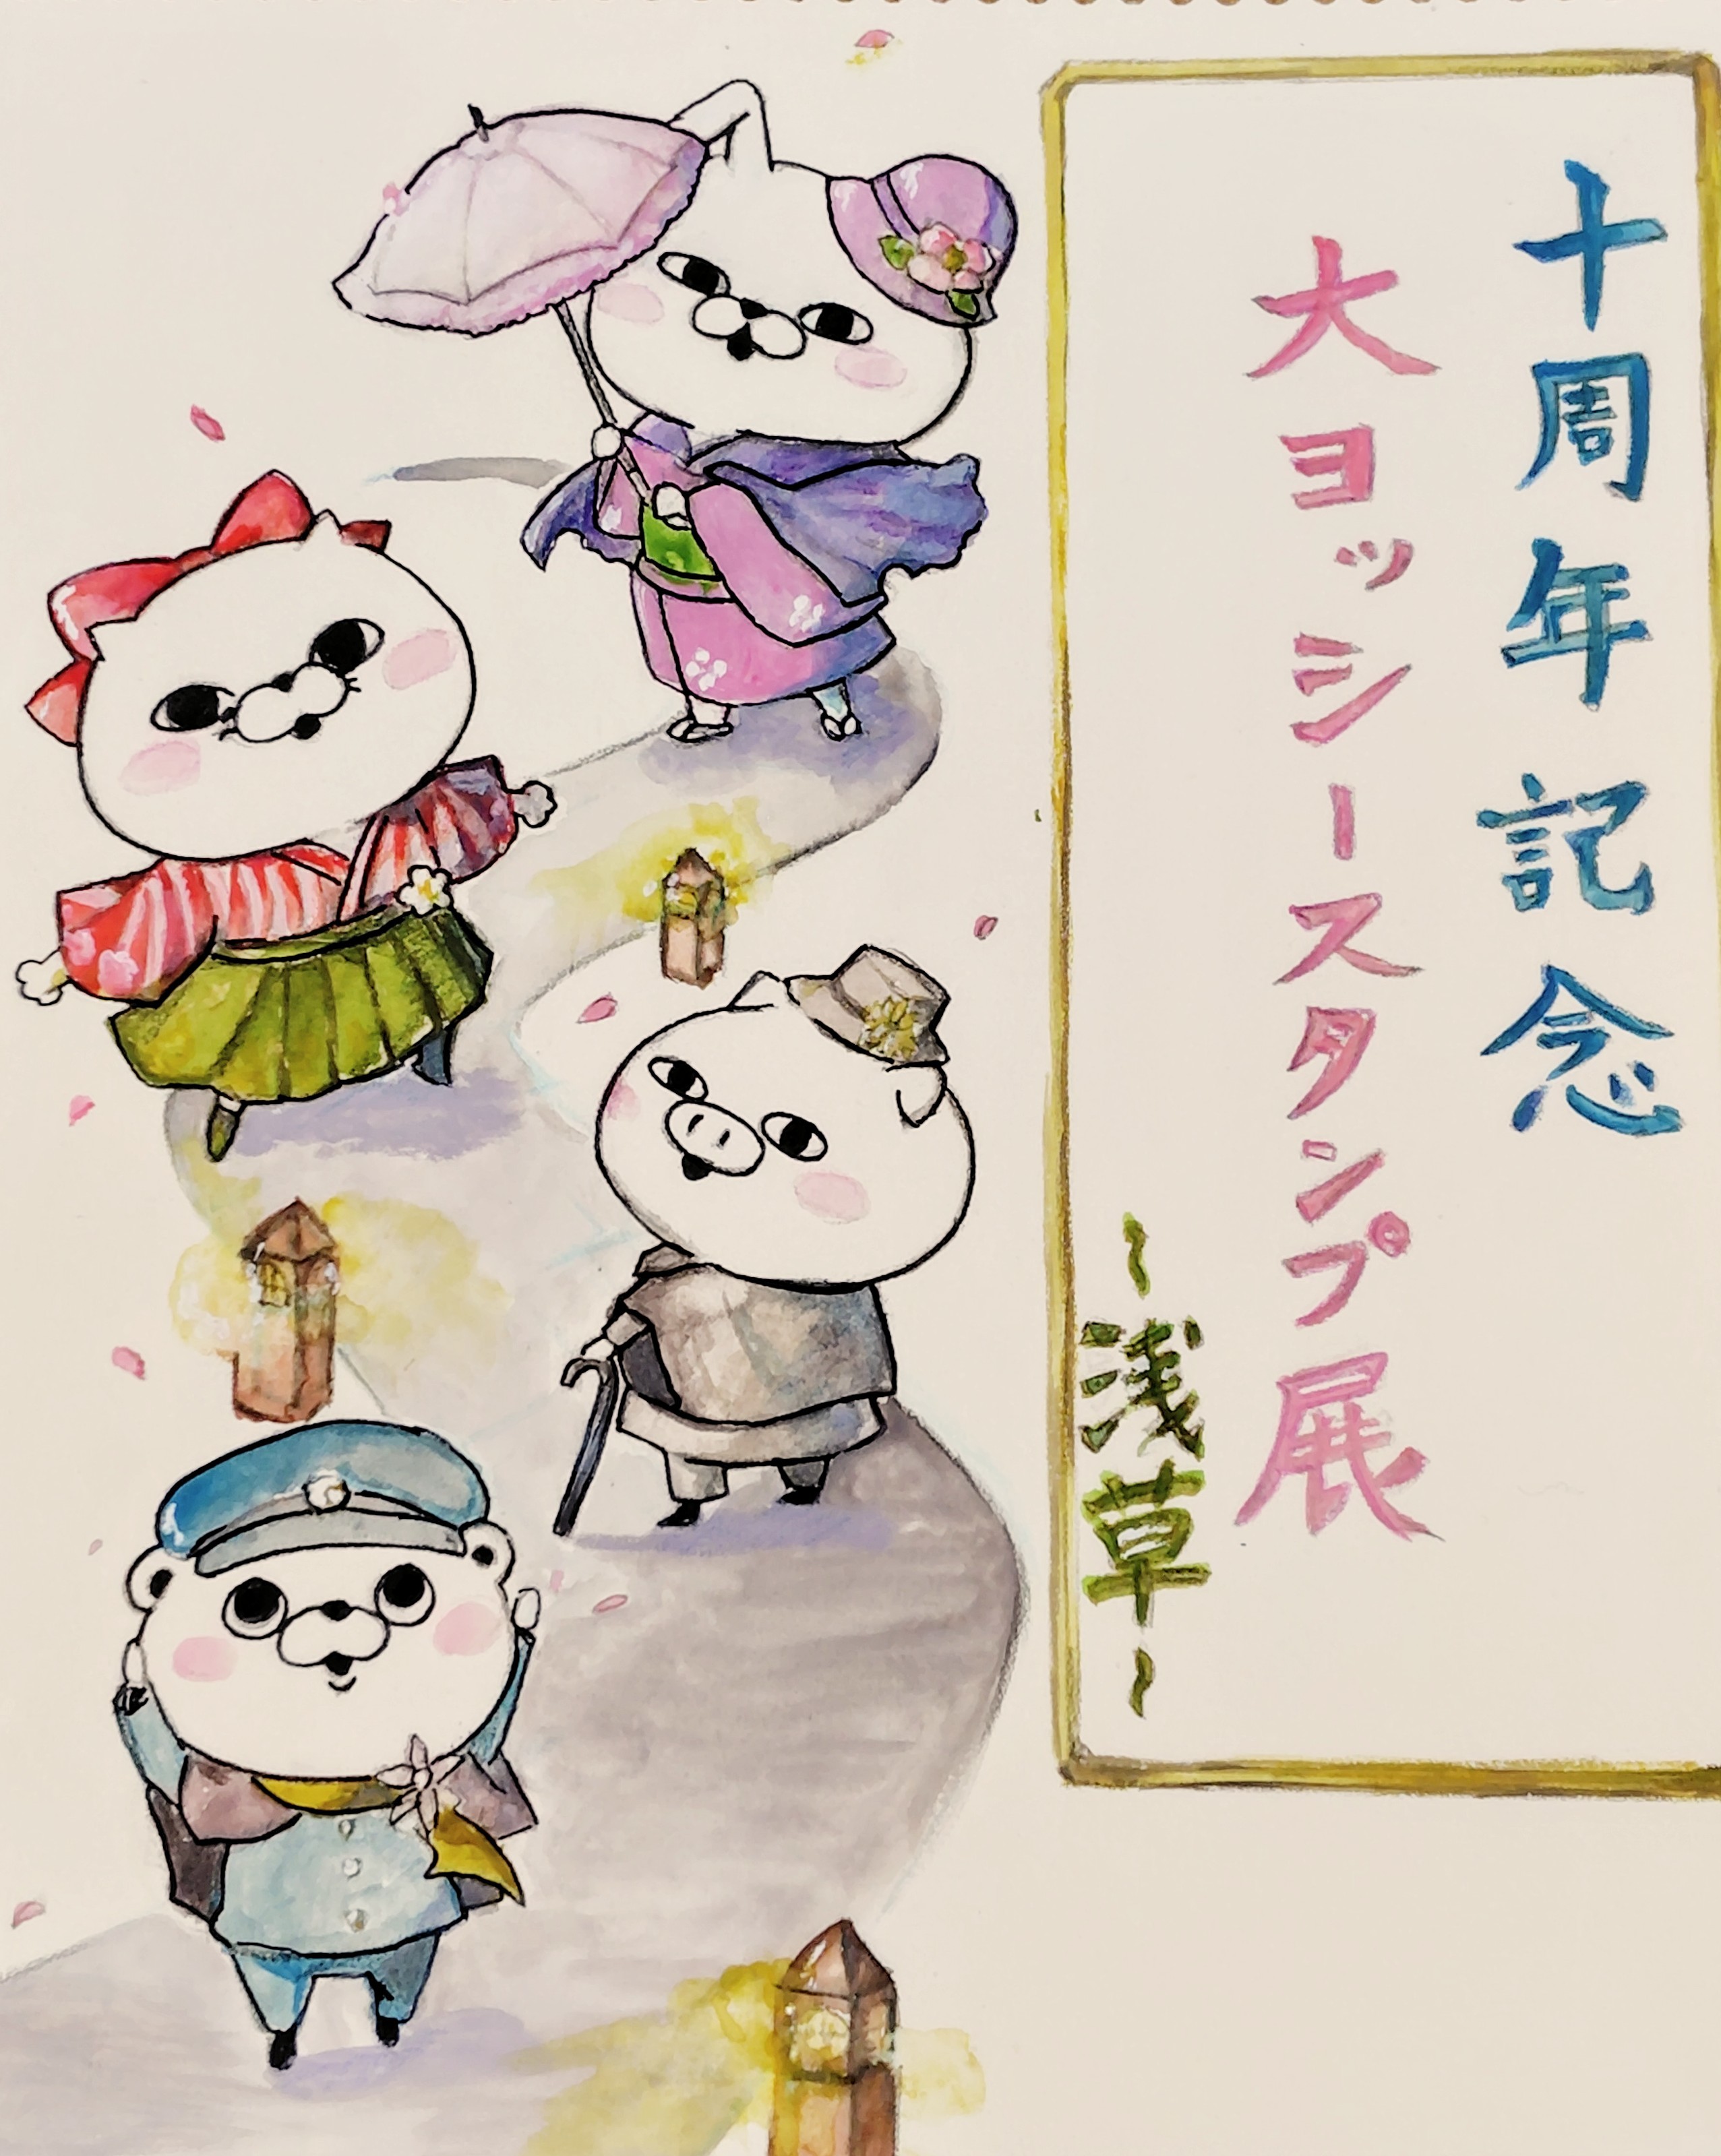 十周年記念
大ヨッシースタンプ展
~浅草~